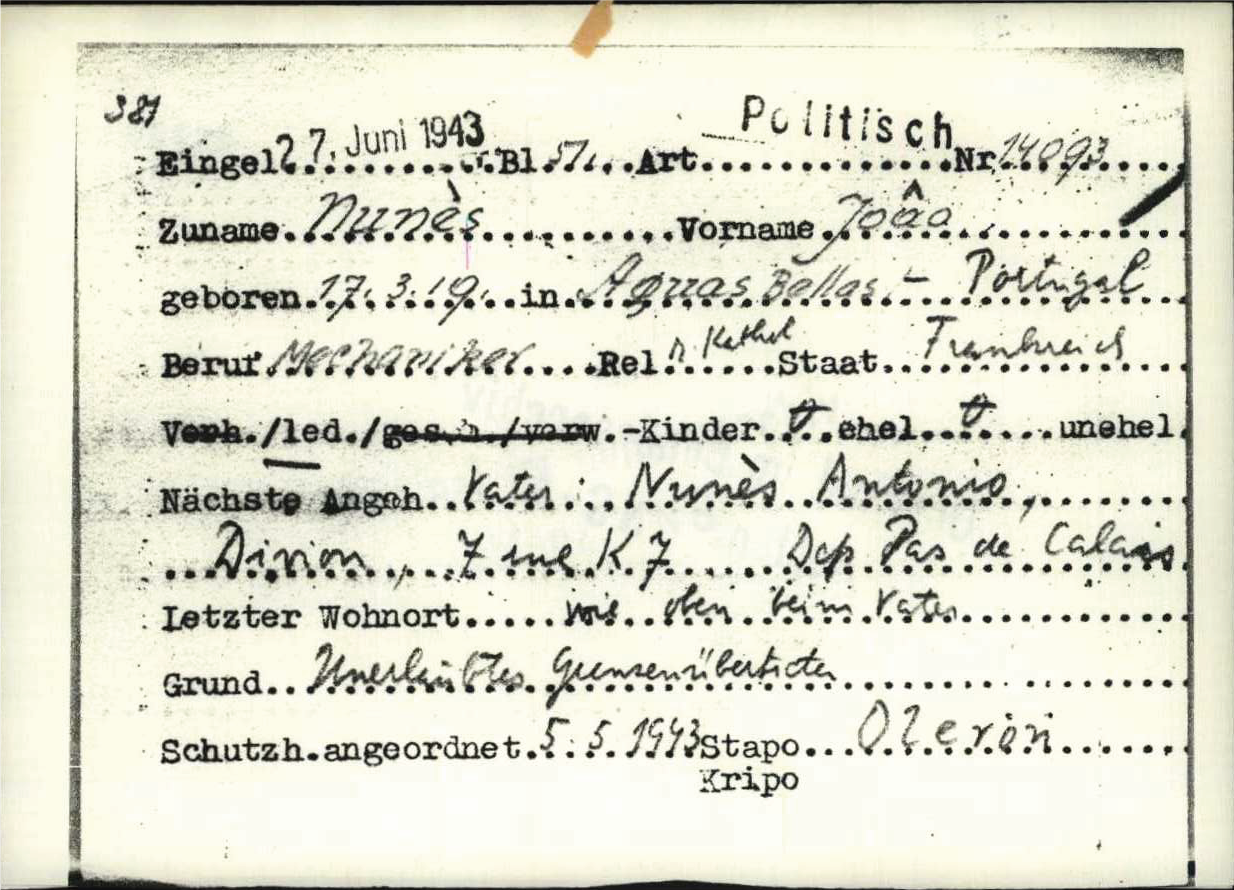 381
Politisch
Eingel. 27. Juni 1943 Bl. 51. Art. Nr. 14093
Zuname. Nunès Vorname. Joâo
geboren. 17.3.19. in. Aguas Bellas - Portugal
Beruf Mechaniker Rel. r. Kathol Staat. Frankreich
Verh./led./gesch./verw.-Kinder. 0 ehel. 0 unehel.
Nächste Angeh. Vater: Nunès Antonio,
Divion, 7 K 7 Dep Pas de Calais
Letzter Wohnort. wie oben beim Vater
Grund.. Unerlaubtes Grenzenübertreten
Schutzh.angeordnet. 5.5.1943 Stapo... Oleron
Kripo